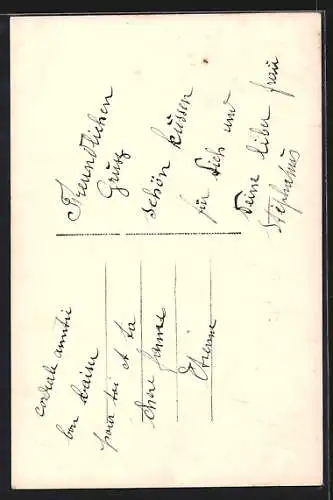 Freundlichen
Gruss
schön küssen
für Dich und
Deine liber frau
Stephanus
cordiale amitié
bon baiser
pour toi et ta
chere femme
Etienne